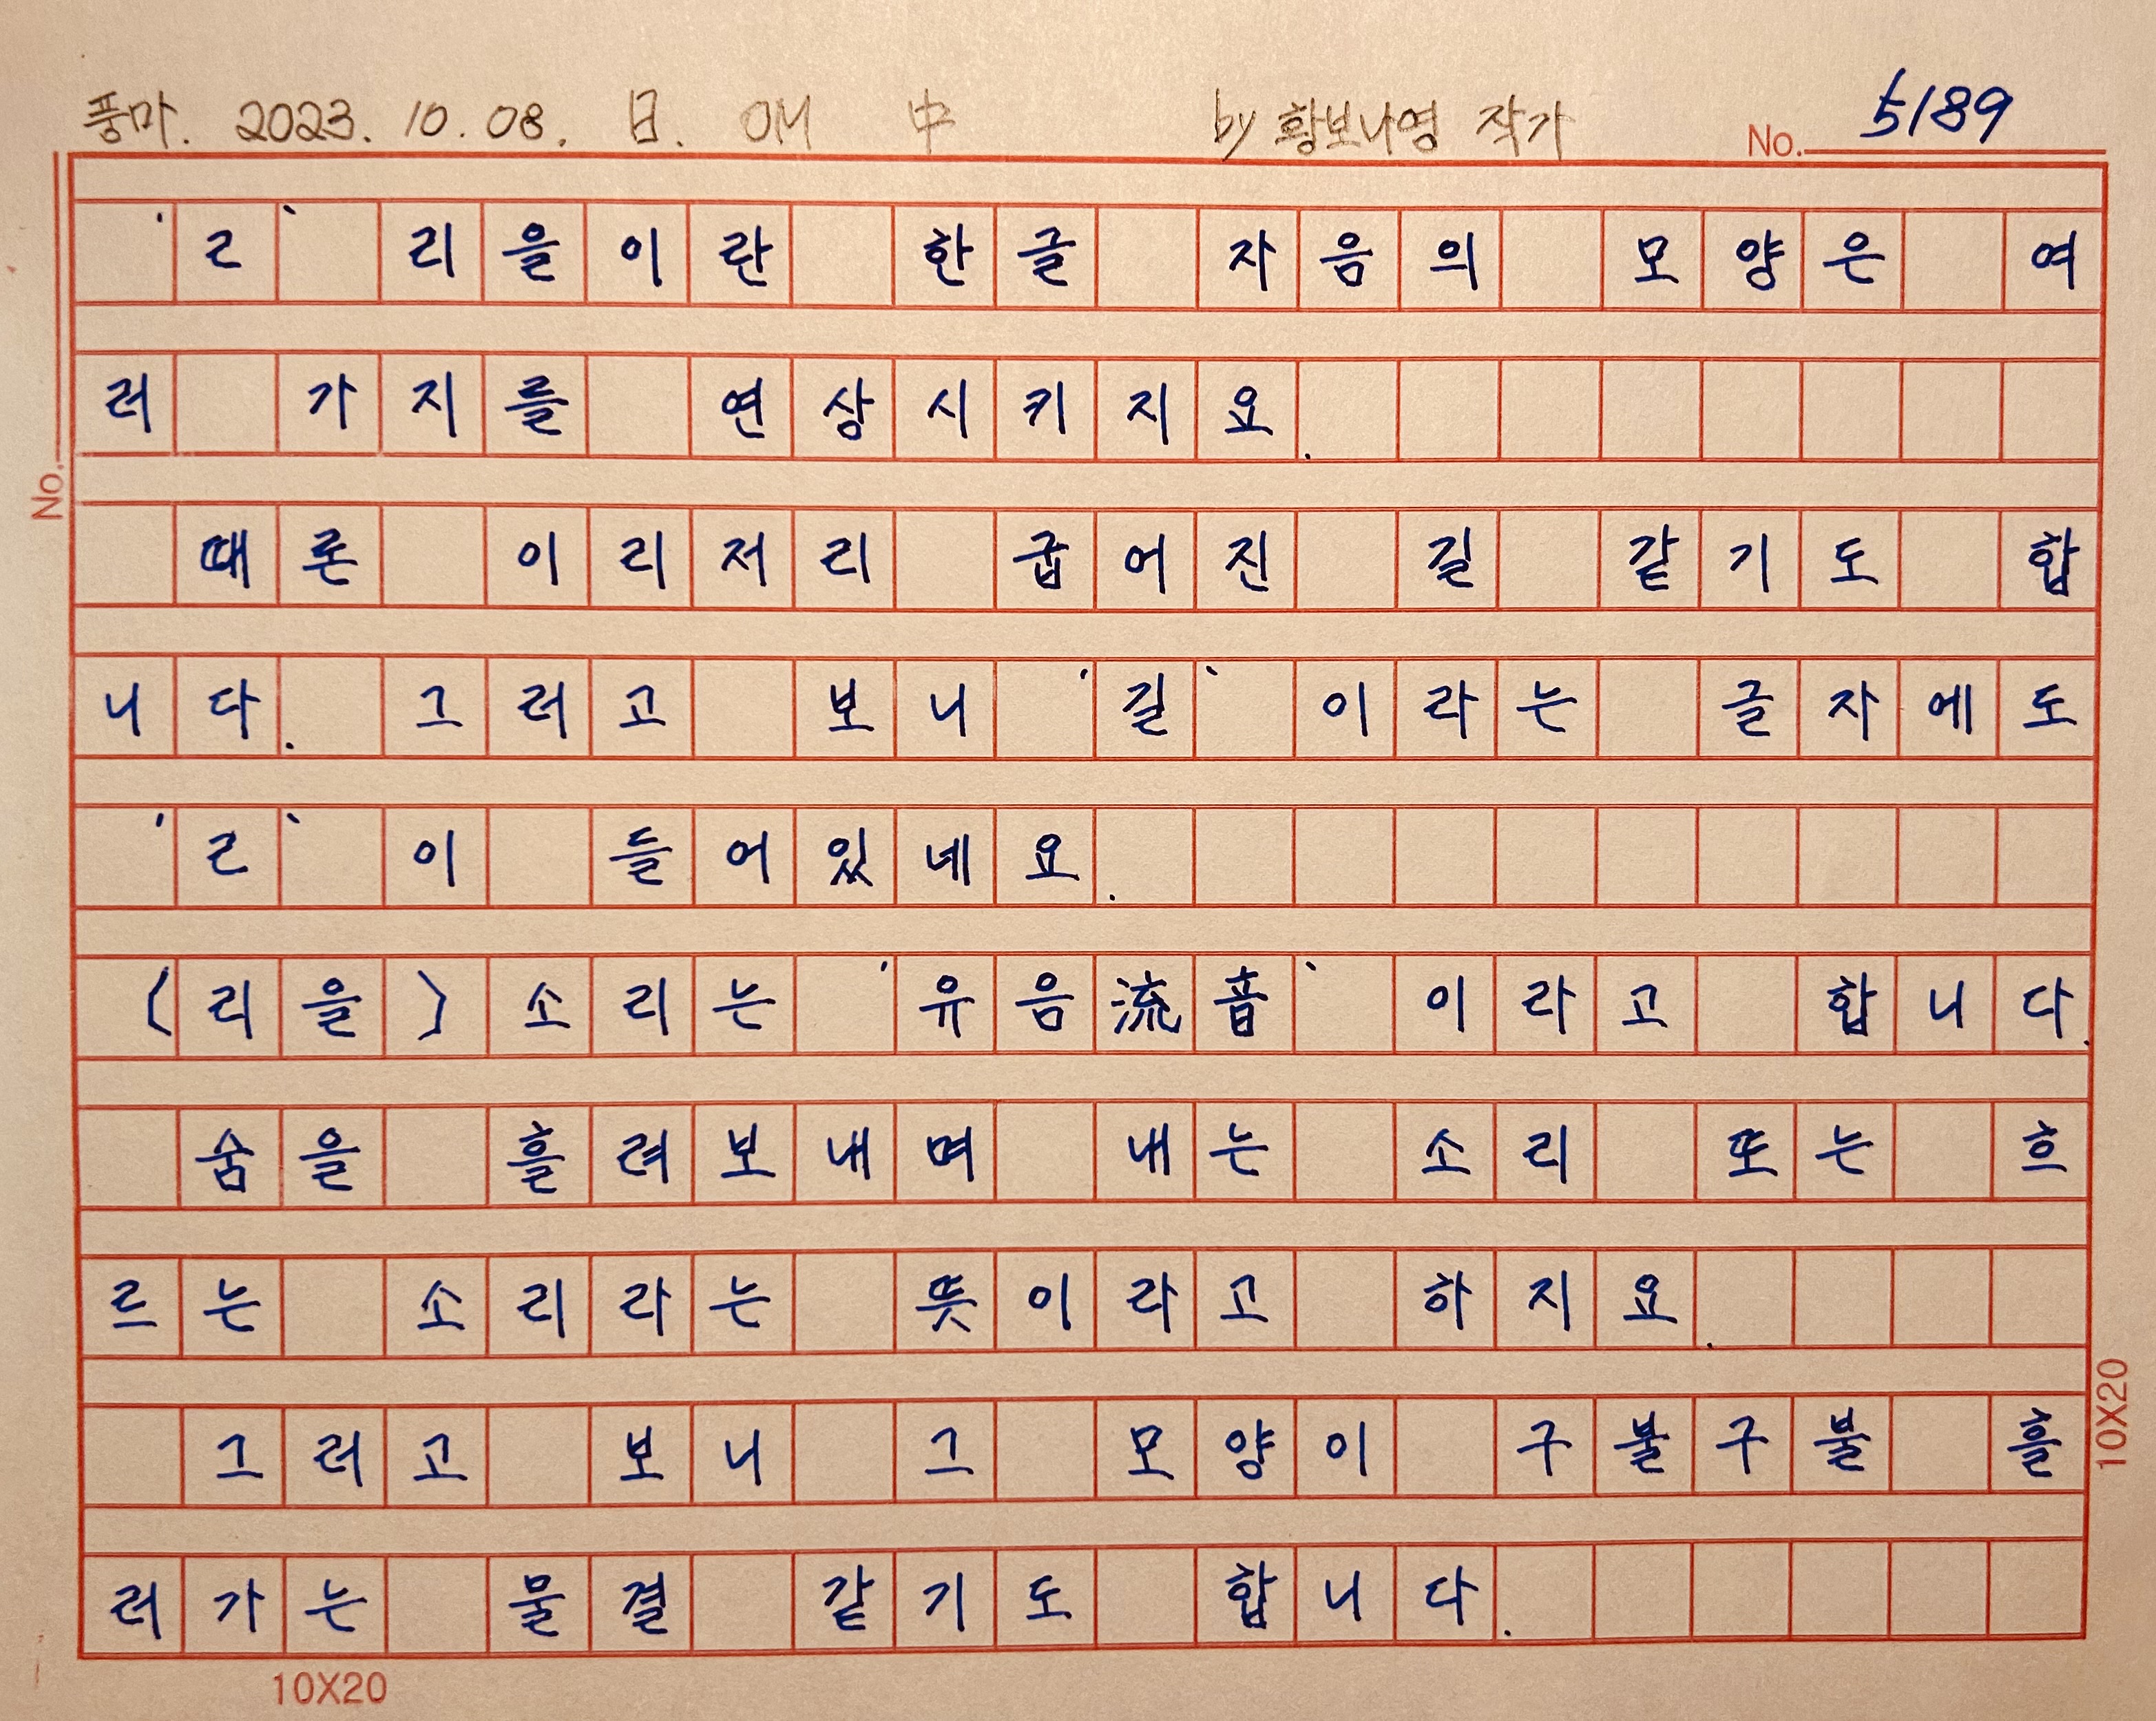 풍마. 2023. 10. 08. 日. OM 中 by 황보나영 작가 No. 5189
'ㄹ' 리을이란 한글 자음의 모양은 여
러 가지를 연상시키지요.
때론 이리저리 굽어진 길 같기도 합
니다. 그러고 보니 '길' 이라는 글자에도
'ㄹ' 이 들어있네요.
(리을) 소리는 '유음流音' 이라고 합니다.
숨을 흘려보내며 내는 소리 또는 흐
르는 소리라는 뜻이라고 하지요.
그러고 보니 그 모양이 구불구불 흘
러가는 물결 같기도 합니다.
No.
10X20
10X20